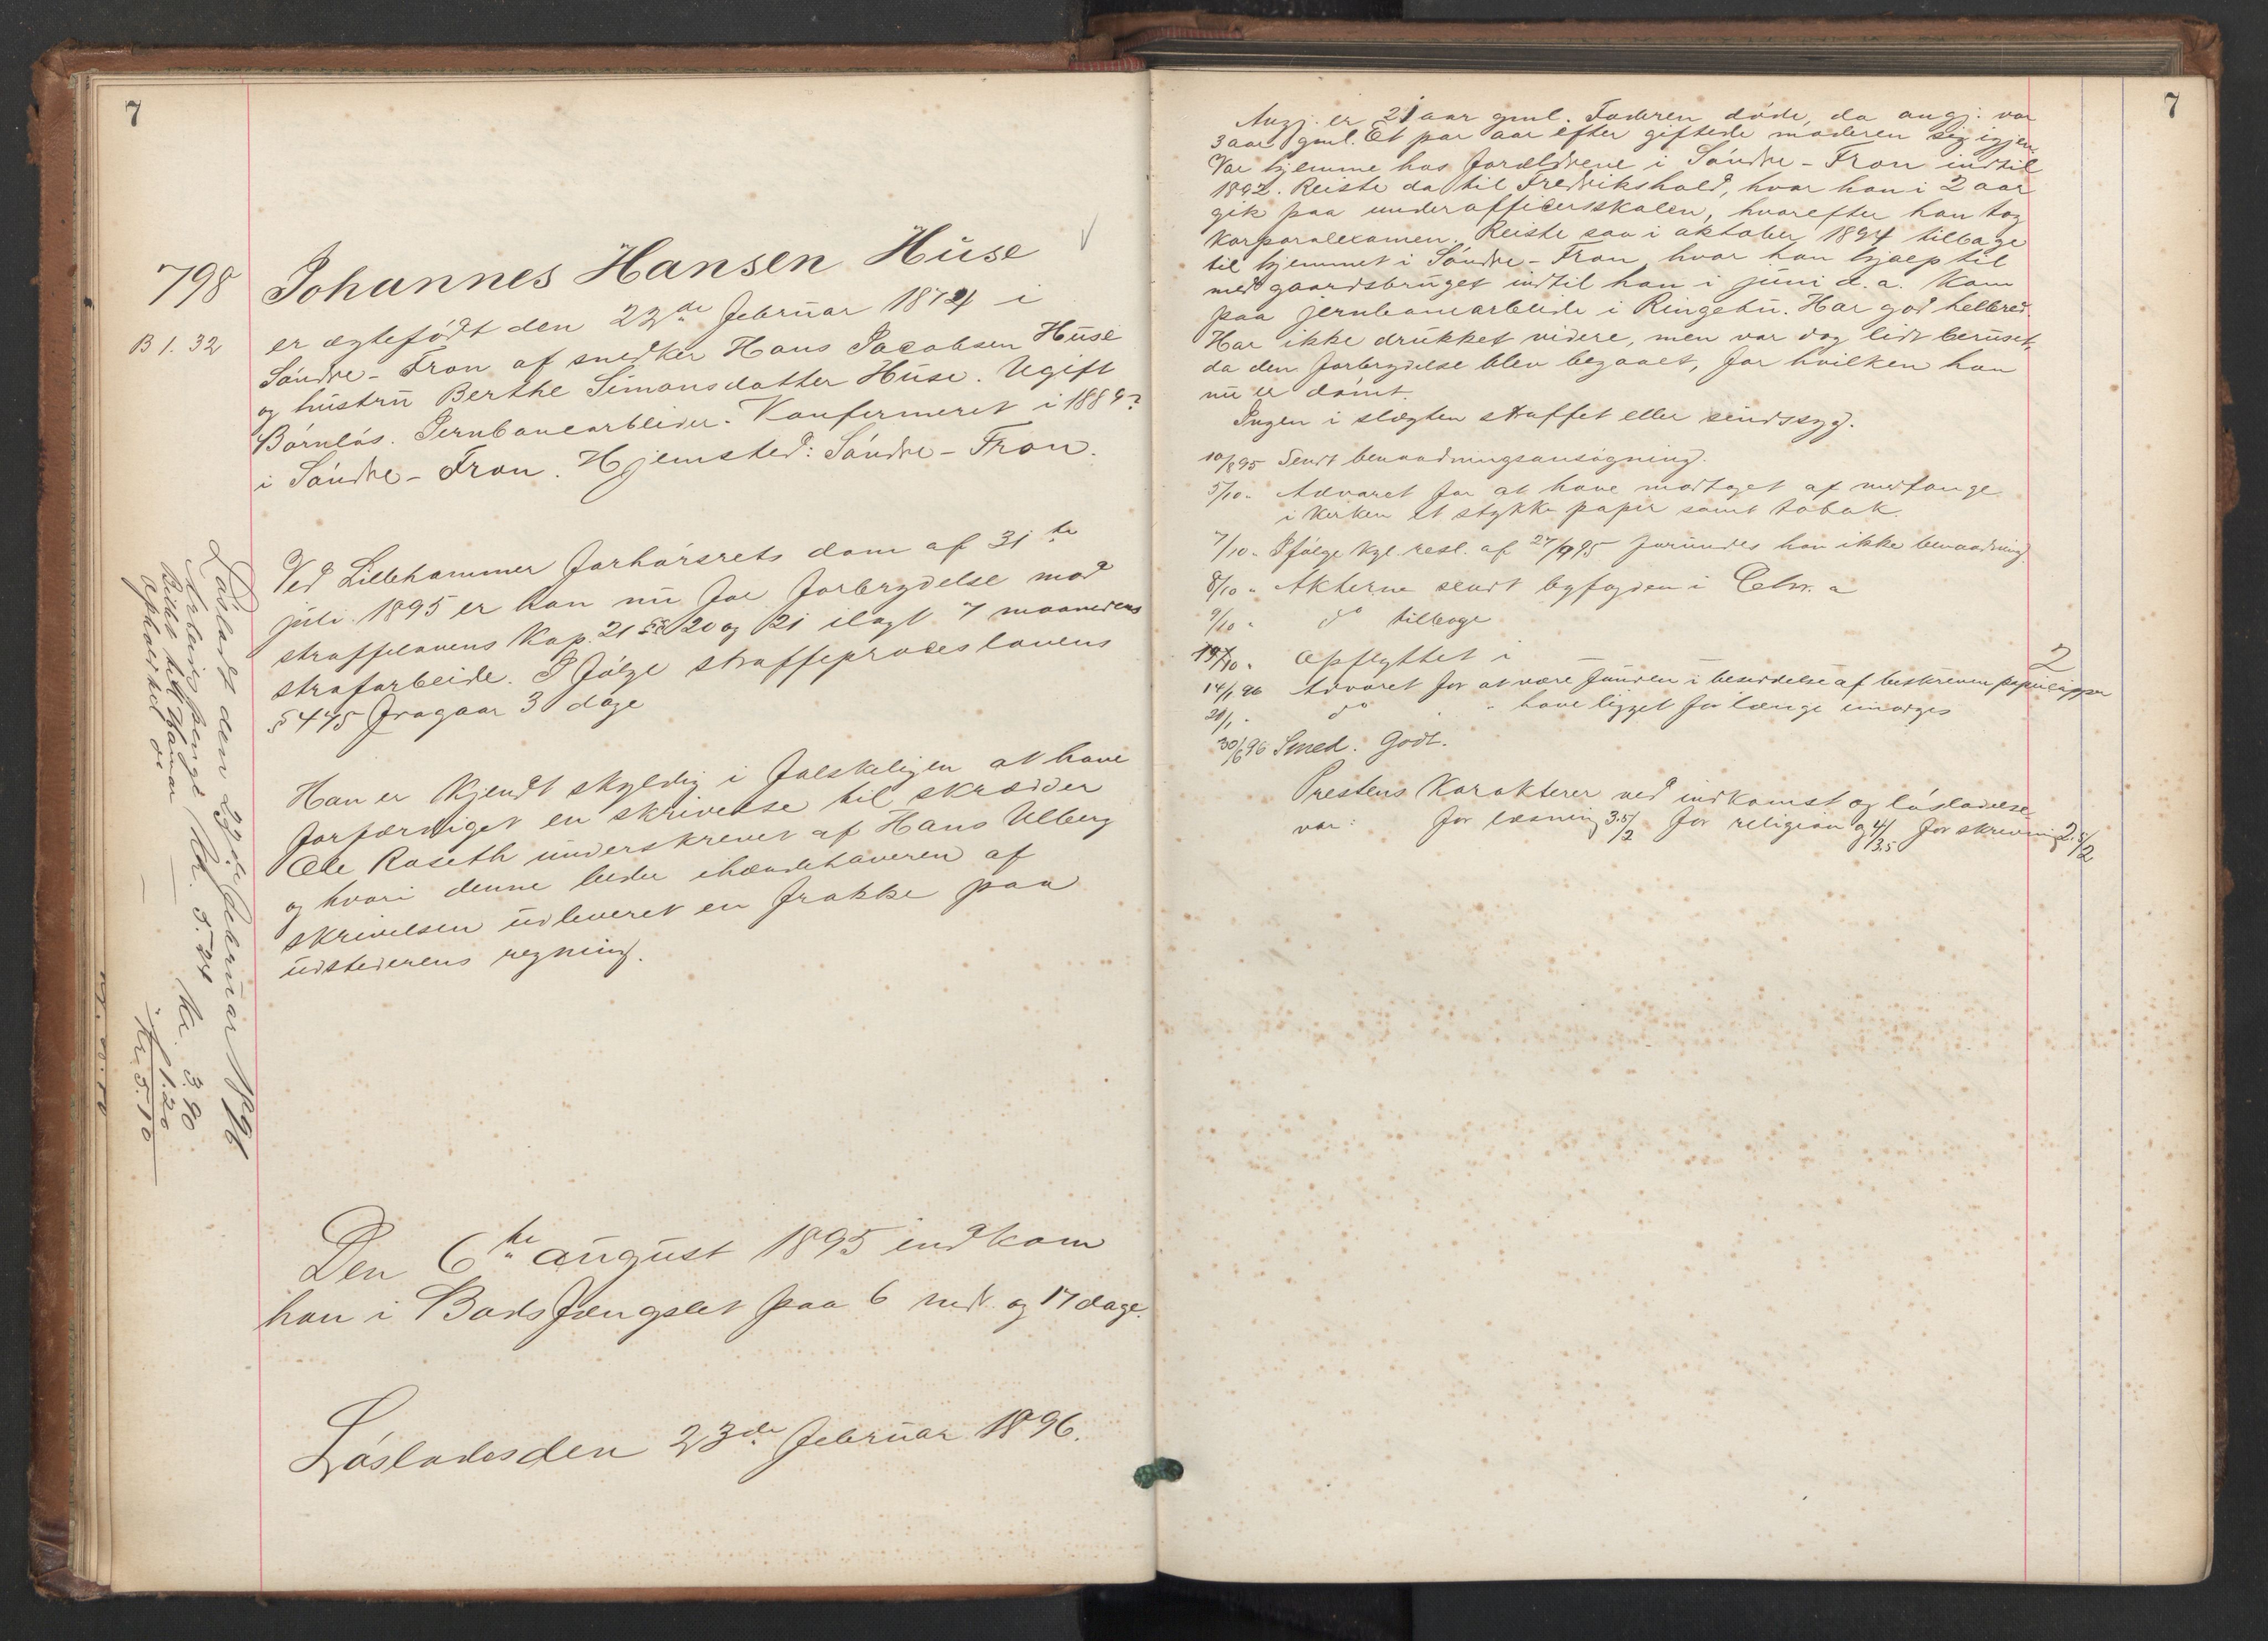 7
798
B 1. 32
Johannes Hansen Huse
er ægtefødt den 23de februar 1874 i
Søndre-Fron af snedker Hans Jacobsen Huse
og hustru Berthe Simonsdatter Huse. Ugift
Børnløs. Jernbanearbeider. Konfirmeret i 1889?
i Søndre-Fron. Hjemsted: Søndre-Fron.
Ved Lillehammer forhørsrets dom af 31te
juli 1895 er han nu for forbrydelse mod
straffelovens Kap. 21 §§ 20 og 21 ilagt 7 maaneders
strafarbeide. Ifølge straffeproceslovens
§ 475 fragaar 3 dage
Han er kjendt skyldig i falskeligen at have
forfærdiget en skrivelse til skrædder
Ole Roseth underskrevet af Hans Ulberg
og hvori denne beder ihændehaveren af
skrivelsen udleveret en frakke paa
udstederens regning.
Den 6te august 1895 indkom
han i Bodsfængslet paa 6 mdr. og 17 dage.
Løslades den 23de februar 1896.
Løsladt den 23de februar 1896
Arbeidspenge Kr. 3.90
Billet til Hamar Kr. 5.24 " 1.20
Opholdssed Kr. 5.10
7
Angj. er 21 aar gml. Faderen døde, da angj. var
3 aar gml. Et par aar efter giftede moderen sig igjen.
Var hjemme hos forældrene i Søndre-Fron indtil
1892. Reiste da til Fredrikshald, hvor han i 2 aar
gik paa underofficersskolen, hvorefter han tog
korporalexamen. Reiste saa i oktober 1894 tilbage
til hjemmet i Søndre-Fron, hvor han hjalp til
med gaardsbruget indtil han i juni d. a. kom
paa jernbanearbeide i Ringebu. Har god helbred.
Har ikke drukket videre, men var dog lidt beruset,
da den forbrydelse blev begaaet, for hvilken han
nu er dømt.
Ingen i slægten straffet eller sindssyg.
10/8 95 Sendt benaadningsansøgning.
5/10 " Advaret for at have modtaget af medfange
i kirken et stykke papir samt tobak.
7/10 " Ifølge kgl. resl. af 27/9 95 forundes han ikke benaadning.
8/10 " Akterne sendt byfogden i
9/10 " do tilbage
19/10 " Opflyttet i 2
14/1 96 Advaret for at være funden i besiddelse af beskreven papirlapper
20/1 " do " have ligget for længe imorges
30/6 96 Smed. Godt.
Prestens Karakterer ved indkomst og løsladelse
var: for læsning 3.5/2 for religion 4/3.5 og for skrivning 2.5/2